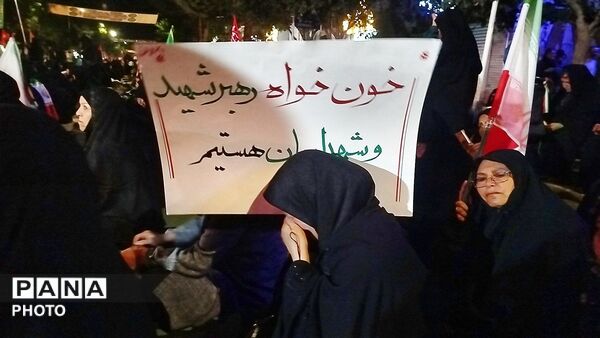 خون خواه رهبر شهید
و شهدایمان هستیم
PANA
PHOTO